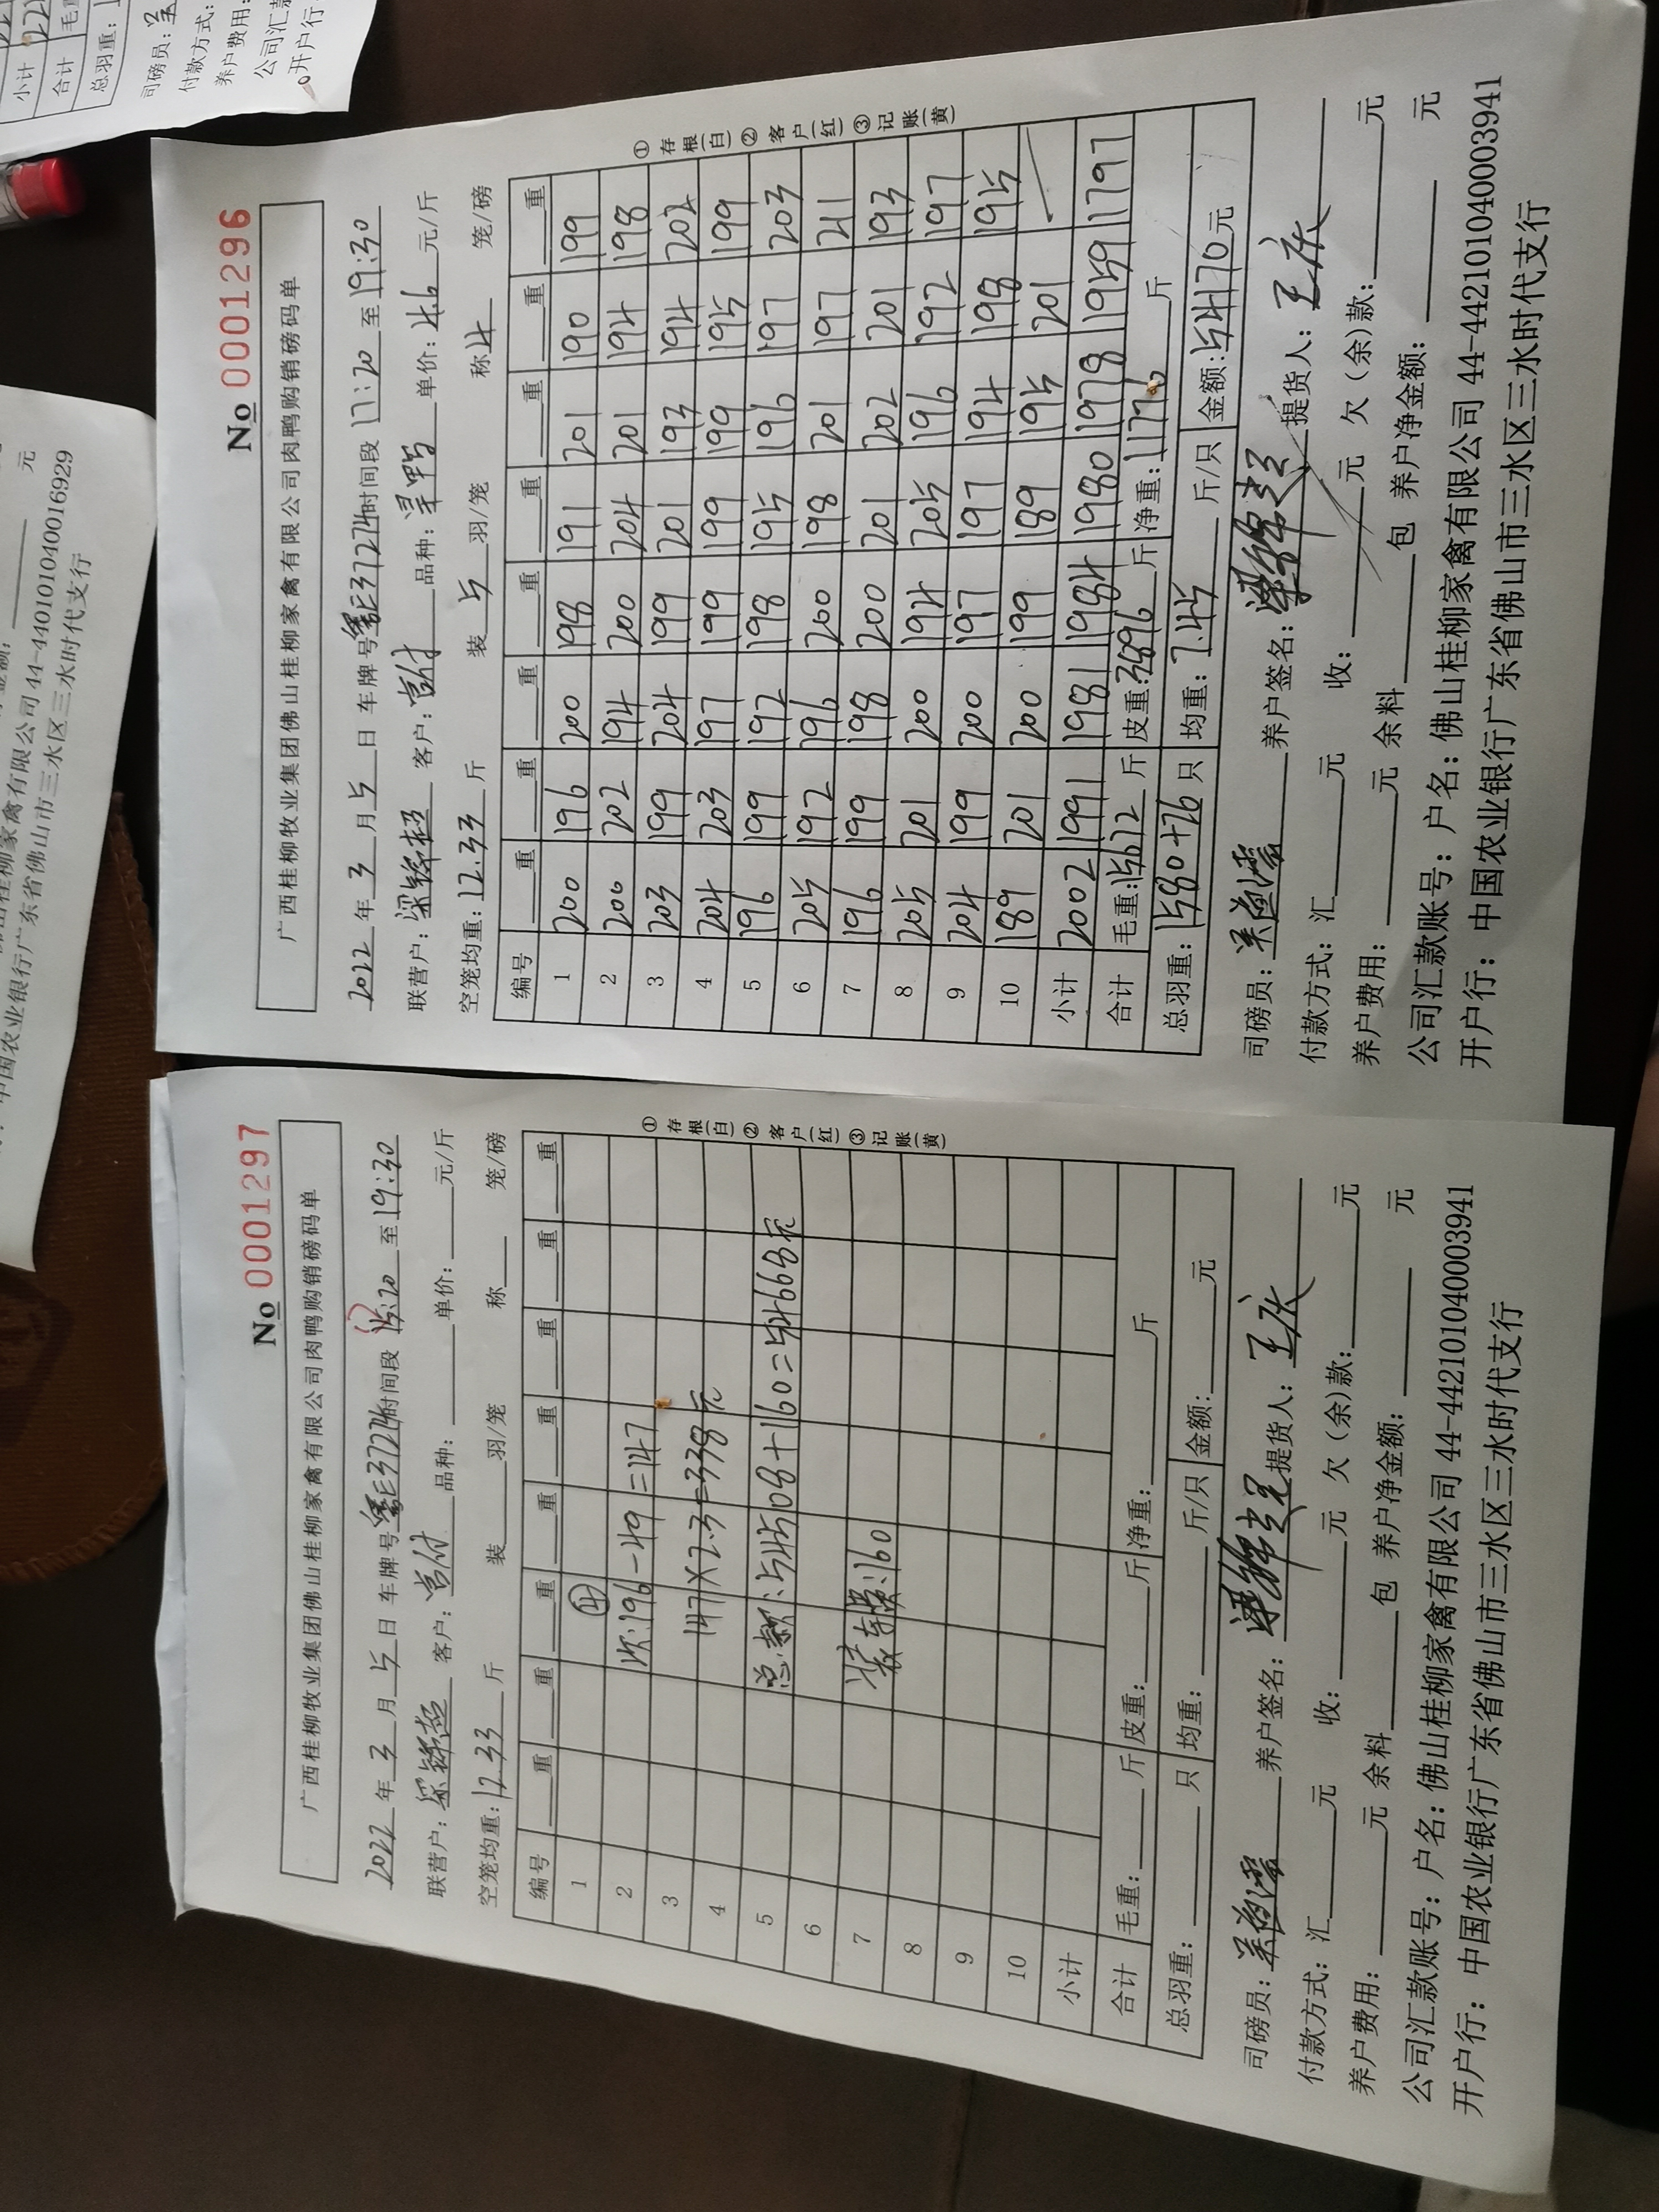 No 0001296
广西桂柳牧业集团佛山桂柳家禽有限公司肉鸭购销磅码单
2022 年 3 月 5 日 车牌号 E37274 时间段 17:20 至 19:30
联营户: 梁锦超 客户: 客户: 品种: 单价: 4.6 元/斤
空笼均重: 12.33 斤 装 5 羽/笼 称 4 笼/磅
编号 重 重 重 重 重 重 重 重
1 200 196 200 198 191 201 190 199
2 200 202 194 200 204 201 194 198
3 203 199 204 199 201 193 194 202
4 204 203 197 199 199 199 195 199
5 196 199 192 198 195 196 197 203
6 205 192 196 200 198 201 197 211
7 196 199 198 200 201 202 201 193
8 205 201 200 194 205 196 192 197
9 204 199 200 197 197 194 198 195
10 189 201 200 199 189 195 201
小计 2002 1991 1981 1984 1980 1978 1959 1797
合计 毛重: 15672 斤 皮重: 3896 斤 净重: 11776 斤
总羽重: 1580+26 只 均重: 7.45 斤/只 金额: 54170 元
①存根(白)②客户(红)③记账(黄)
司磅员: 养户签名: 梁锦超 提货人: 王庆
付款方式: 汇 元 收: 元 欠(余)款: 元
养户费用: 元 余料 包 养户净金额: 元
公司汇款账号: 户名: 佛山桂柳家禽有限公司 44-442101040003941
开户行: 中国农业银行广东省佛山市三水区三水时代支行
No 0001297
广西桂柳牧业集团佛山桂柳家禽有限公司肉鸭购销磅码单
2022 年 3 月 5 日 车牌号 E37274 时间段 15:20 至 19:30
联营户: 梁锦超 客户: 品种: 单价: 元/斤
空笼均重: 12.33 斤 装 羽/笼 称 笼/磅
编号 重 重 重 重 重 重 重 重
1 ④
2 次:196-49=147
3
4 147×2.3=338元
5 总款:54508+160=54668元
6
7 装车费:160
8
9
10
小计
合计 毛重: 斤 皮重: 斤 净重: 斤
总羽重: 只 均重: 斤/只 金额: 元
①存根(白)②客户(红)③记账(黄)
司磅员: 养户签名: 梁锦超 提货人: 王庆
付款方式: 汇 元 收: 元 欠(余)款: 元
养户费用: 元 余料 包 养户净金额: 元
公司汇款账号: 户名: 佛山桂柳家禽有限公司 44-442101040003941
开户行: 中国农业银行广东省佛山市三水区三水时代支行
小计
合计
总羽重:
司磅员:
付款方式:
养户费用:
公司汇款
开户行:
元
有限公司 44-440101040016929
中国农业银行广东省佛山市三水区三水时代支行